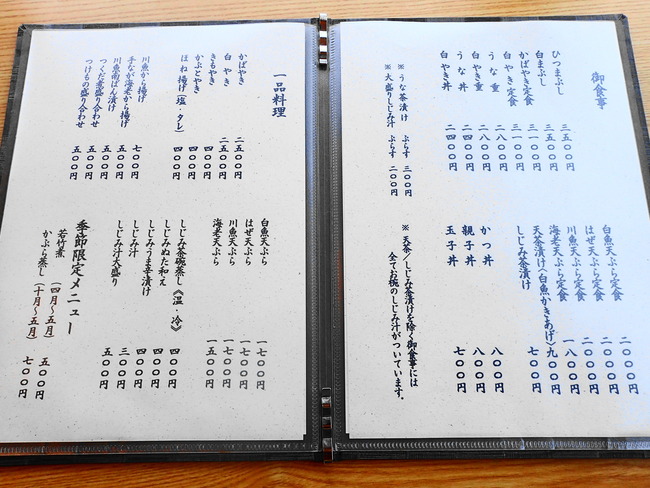 御食事
ひつまぶし 三五〇〇円
白まぶし 三五〇〇円
かばやき定食 三一〇〇円
白やき定食 三一〇〇円
うな重 二八〇〇円
白やき重 二八〇〇円
うな丼 二四〇〇円
白やき丼 二四〇〇円
※うな茶漬け ぷらす 三〇〇円
※大盛りしじみ汁 ぷらす 二〇〇円
白魚天ぷら定食 二〇〇〇円
はぜ天ぷら定食 二〇〇〇円
川魚天ぷら定食 二〇〇〇円
海老天ぷら定食 一八〇〇円
天茶漬け(白魚かきあげ) 九〇〇円
しじみ茶漬け 七〇〇円
かつ丼 八〇〇円
親子丼 八〇〇円
玉子丼 七〇〇円
※ 天茶/しじみ茶漬けを除く御食事には
全てお椀のしじみ汁がついています。
一品料理
かばやき 二五〇〇円
白やき 二五〇〇円
きもやき 四〇〇円
かぶとやき 四〇〇円
ほね揚げ(塩、タレ) 四〇〇円
川魚から揚げ 七〇〇円
手なが海老から揚げ 五〇〇円
川魚南ばん漬け 五〇〇円
つくだ煮盛り合わせ 五〇〇円
つけもの盛り合わせ 五〇〇円
白魚天ぷら 一七〇〇円
はぜ天ぷら 一七〇〇円
川魚天ぷら 一七〇〇円
海老天ぷら 一五〇〇円
しじみ茶碗蒸し《温・冷》 四〇〇円
しじみぬた和え 四〇〇円
しじみうま辛漬け 四〇〇円
しじみ汁 三〇〇円
しじみ汁大盛り 五〇〇円
季節限定メニュー
若竹煮 (四月〜五月) 五〇〇円
かぶら蒸し (十月〜五月) 七〇〇円